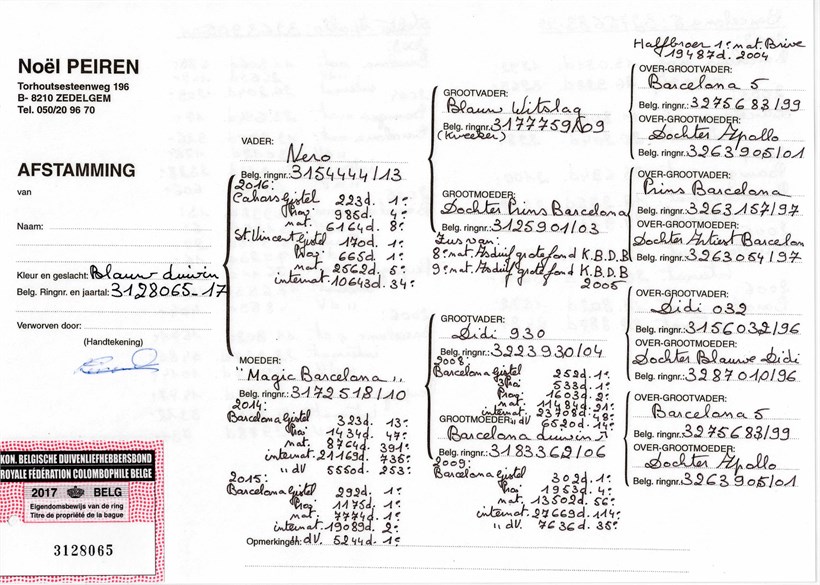 Noël PEIREN
Torhoutsesteenweg 196
B- 8210 ZEDELGEM
Tel. 050/20 96 70
AFSTAMMING
van
Naam:
Kleur en geslacht: Blauw duivin
Belg. Ringnr. en jaartal: 3128065-17
Verworven door:
(Handtekening)
KON. BELGISCHE DUIVENLIEFHEBBERSBOND
ROYALE FÉDÉRATION COLOMBOPHILE BELGE
2017 BELG
Eigendomsbewijs van de ring
Titre de propriété de la bague
3128065
VADER:
Nero
Belg. ringnr.: 3154444/13
2016:
Cahors Gistel 223d. 1e
985d. 4e
nat. 6164d. 8e
St. Vincent Gistel 170d. 1e
665d. 1e
nat. 2562d. 5e
internat 10643d. 34e
MOEDER:
"Magic Barcelona"
Belg. ringnr.: 3172518/10
2014:
Barcelona Gistel 323d. 13e
1434d. 47e
nat. 8764d. 391e
internat. 21169d. 735e
" dV 5550d. 253e
2015:
Barcelona Gistel 292d. 1e
1175d. 1e
nat. 7774d. 1e
internat. 19089d. 2e
Opmerkingen: dV. 5244d. 1e
GROOTVADER:
Blauw Witslag
Belg. ringnr.: 3177759/09
(Kweker)
GROOTMOEDER:
Dochter Prins Barcelona
Belg. ringnr.: 3125901/03
Zus van:
8e nat. Asduif grote fond K.B.D.B
9e nat. Asduif grote fond K.B.D.B
2005
GROOTVADER:
Didi 930
Belg. ringnr.: 3223930/04
2008:
Barcelona Gistel 252d. 1e
533d. 1e
1603d. 2e
nat. 11484d. 21e
internat 23708d. 48e
" dV 6520d. 14e
GROOTMOEDER:
Barcelona duivin
Belg. ringnr.: 3183362/06
2009:
Barcelona Gistel 302d. 1e
1953d. 4e
nat. 13502d. 56e
internat. 27669d. 114e
" dV. 7636d. 35e
Halfbroer 1e nat. Brive
19487d. 2004
OVER-GROOTVADER:
Barcelona 5
Belg. ringnr.: 3275683/99
OVER-GROOTMOEDER:
Dochter Apollo
Belg. ringnr.: 3263905/01
OVER-GROOTVADER:
Prins Barcelona
Belg. ringnr.: 3263157/97
OVER-GROOTMOEDER:
Dochter Artiest Barcelon
Belg. ringnr.: 3263054/97
OVER-GROOTVADER:
Didi 032
Belg. ringnr.: 3156032/96
OVER-GROOTMOEDER:
Dochter Blauwe Didi
Belg. ringnr.: 3287010/96
OVER-GROOTVADER:
Barcelona 5
Belg. ringnr.: 3275683/99
OVER-GROOTMOEDER:
Dochter Apollo
Belg. ringnr.: 3263905/01